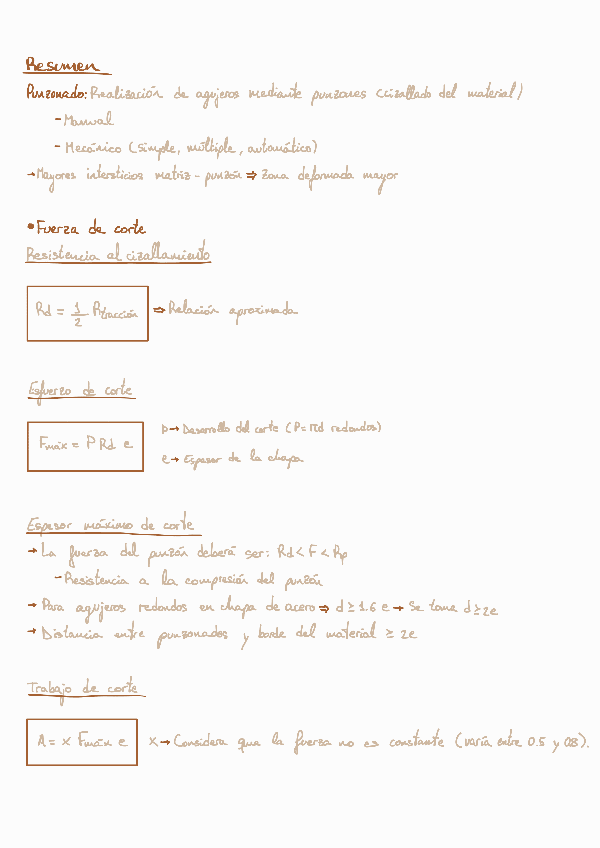 Resumen
Punzonado: Realización de agujeros mediante punzones (cizallado del material)
- Manual
- Mecánico (simple, múltiple, automático)
→ Mayores intersticios matriz - punzón ⇒ Zona deformada mayor
• Fuerza de corte
Resistencia al cizallamiento
Rd = 1/2 Rtracción ⇒ Relación aproximada
Esfuerzo de corte
Fmáx = P Rd e
P → Desarrollo del corte (P = πd redondos)
e → Espesor de la chapa.
Espesor máximo de corte
→ La fuerza del punzón deberá ser: Rd < F < Rp
- Resistencia a la compresión del punzón
→ Para agujeros redondos en chapa de acero ⇒ d ≥ 1.6 e → Se toma d ≥ 2e
→ Distancia entre punzonados y borde del material ≥ 2e
Trabajo de corte
A = x Fmáx e x → Considera que la fuerza no es constante (varía entre 0.5 y 0.8).